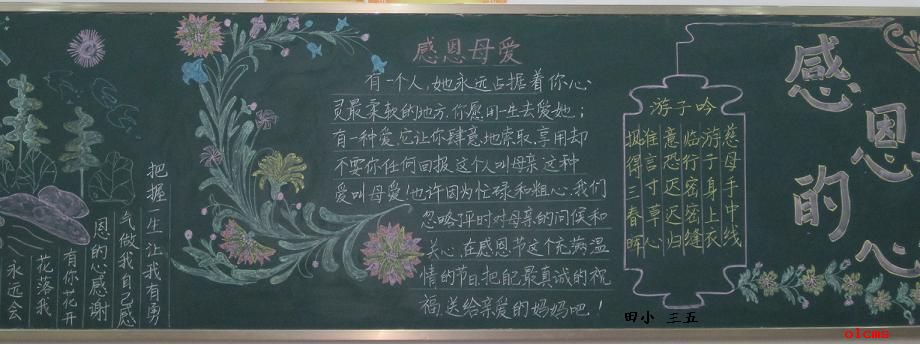 把握一生让我有勇
气做我自己感
恩的心感谢
有你花开
花落我
永远会
感恩母爱
有一个人,她永远占据着你心
灵最柔软的地方,你愿用一生去爱她;
有一种爱,它让你肆意地索取、享用却
不要你任何回报,这个人叫母亲,这种
爱叫母爱!也许因为忙碌和粗心,我们
忽略了平时对母亲的问候和
关心,在感恩节这个充满温
情的节日,把最真诚的祝
福,送给亲爱的妈妈吧!
游子吟
慈母手中线
游子身上衣
临行密密缝
意恐迟迟归
谁言寸草心
报得三春晖
感恩的心
田小 三五
olcms